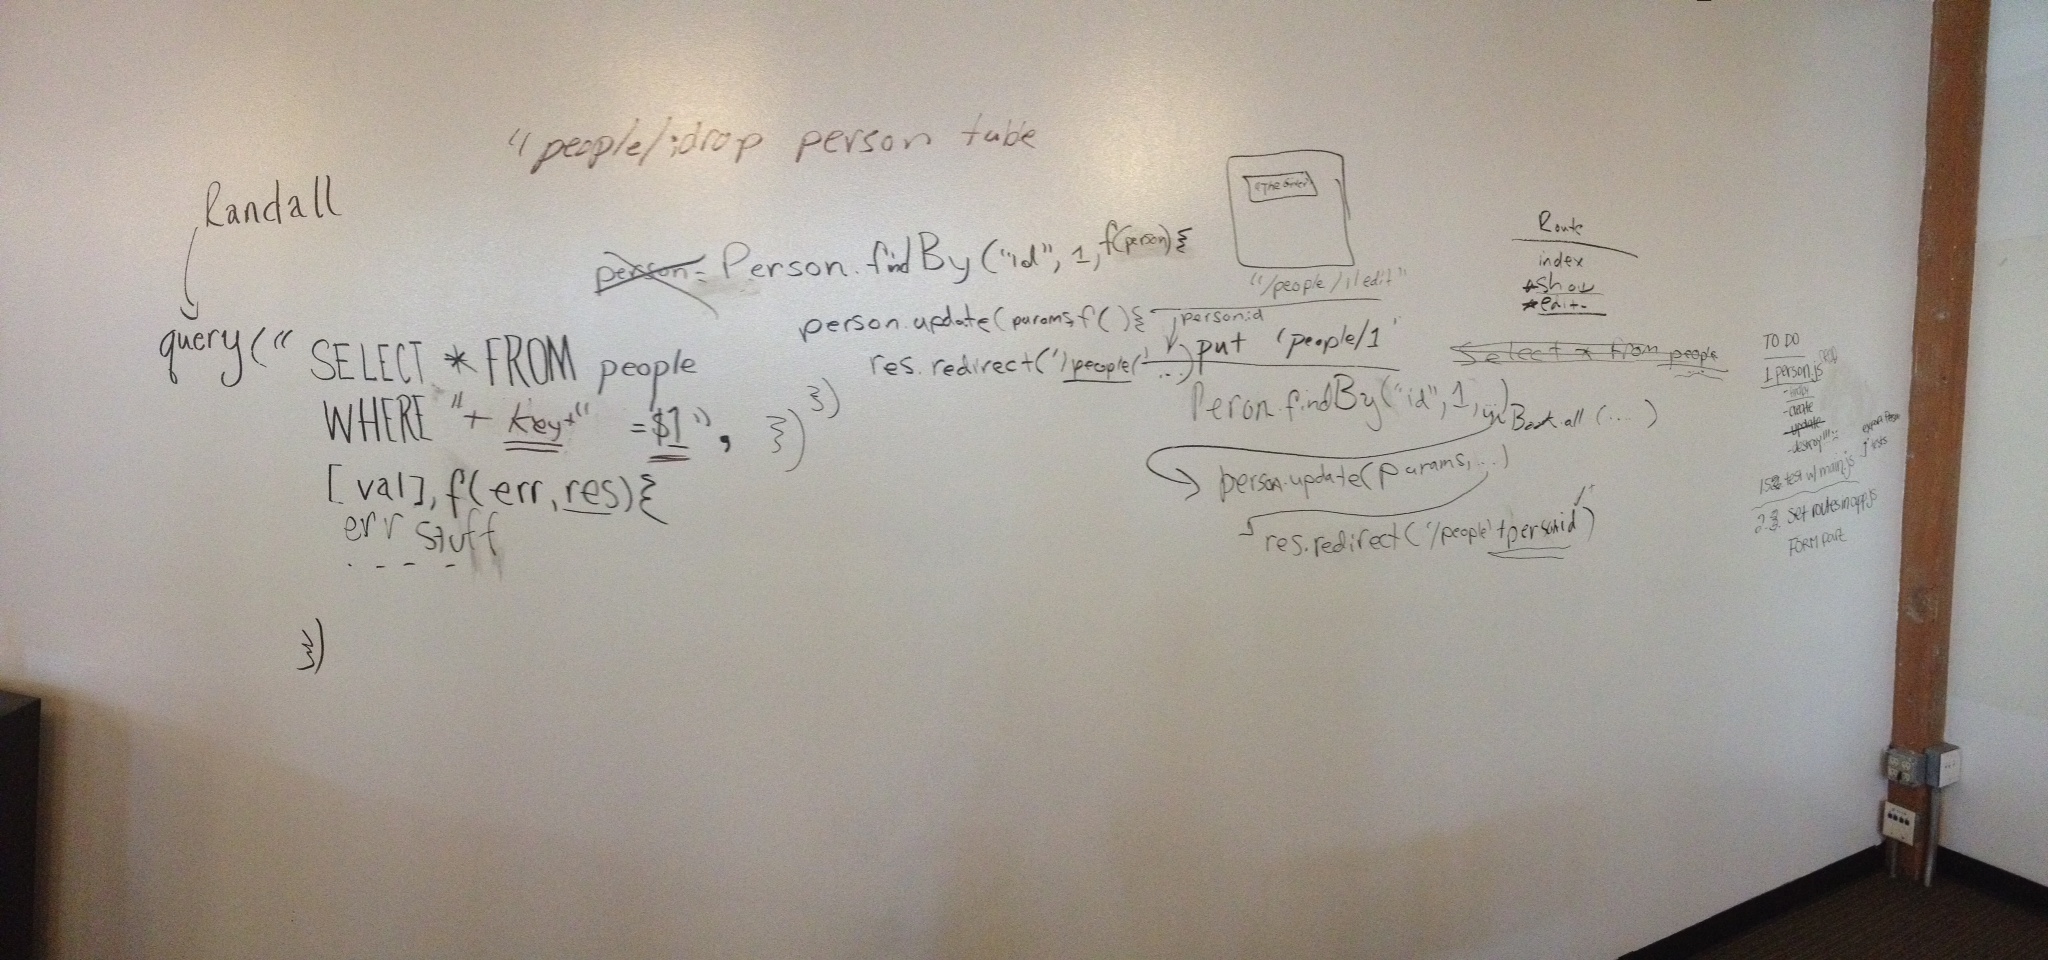 "people/;drop person table
Randall
query("
SELECT * FROM people
WHERE "+ key+" = $1",
[val], f(err, res){
err stuff
. - - -
})
person = Person.findBy("id", 1, f(person){
person.update(params, f(){
res.redirect('/people/' ...)
})
})
"/people/1/edit"
person.id
put 'people/1'
Peron.findBy("id", 1, ...)
person.update(params, ...)
res.redirect('/people'+personid)
Route
index
*show
*edit
Select * from people
Book.all (....)
TO DO
1 person.js
- create
- update
- destroy!!!
test w/ main.js
tests
Set routes in app.js
FORM part